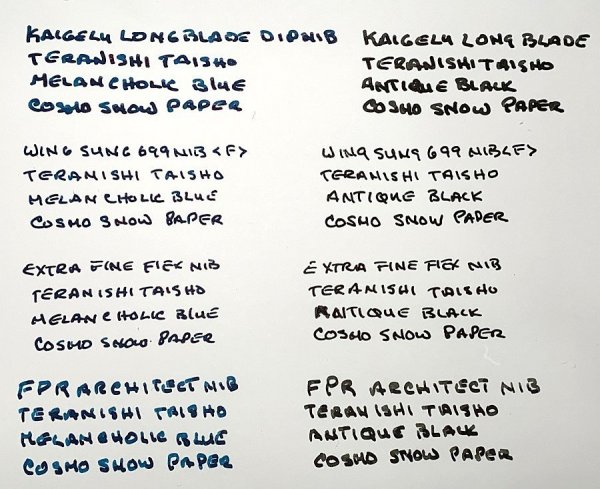 KAIGELU LONG BLADE DIP NIB
TERANISHI TAISHO
MELANCHOLIC BLUE
COSMO SNOW PAPER
KAIGELU LONG BLADE
TERANISHI TAISHO
ANTIQUE BLACK
COSMO SNOW PAPER
WING SUNG 699 NIB <F>
TERANISHI TAISHO
MELANCHOLIC BLUE
COSMO SNOW PAPER
WING SUNG 699 NIB <F>
TERANISHI TAISHO
ANTIQUE BLACK
COSMO SNOW PAPER
EXTRA FINE FLEX NIB
TERANISHI TAISHO
MELANCHOLIC BLUE
COSMO SNOW PAPER
EXTRA FINE FLEX NIB
TERANISHI TAISHO
ANTIQUE BLACK
COSMO SNOW PAPER
FPR ARCHITECT NIB
TERANISHI TAISHO
MELANCHOLIC BLUE
COSMO SNOW PAPER
FPR ARCHITECT NIB
TERANISHI TAISHO
ANTIQUE BLACK
COSMO SNOW PAPER